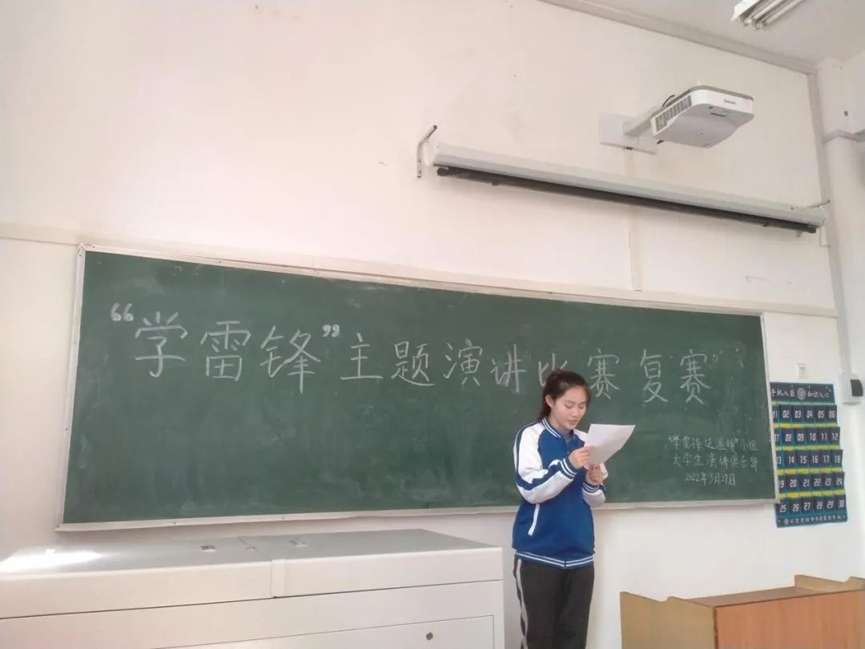 “学雷锋”主题演讲比赛复赛
“学雷锋 送温暖”小组
大学生演讲俱乐部
2022年3月27日
01 02 03 04 05 06
07 08 09 10 11 12
13 14 15 16 17 18
19 20 21 22 23 24
25 26 27 28 29 30